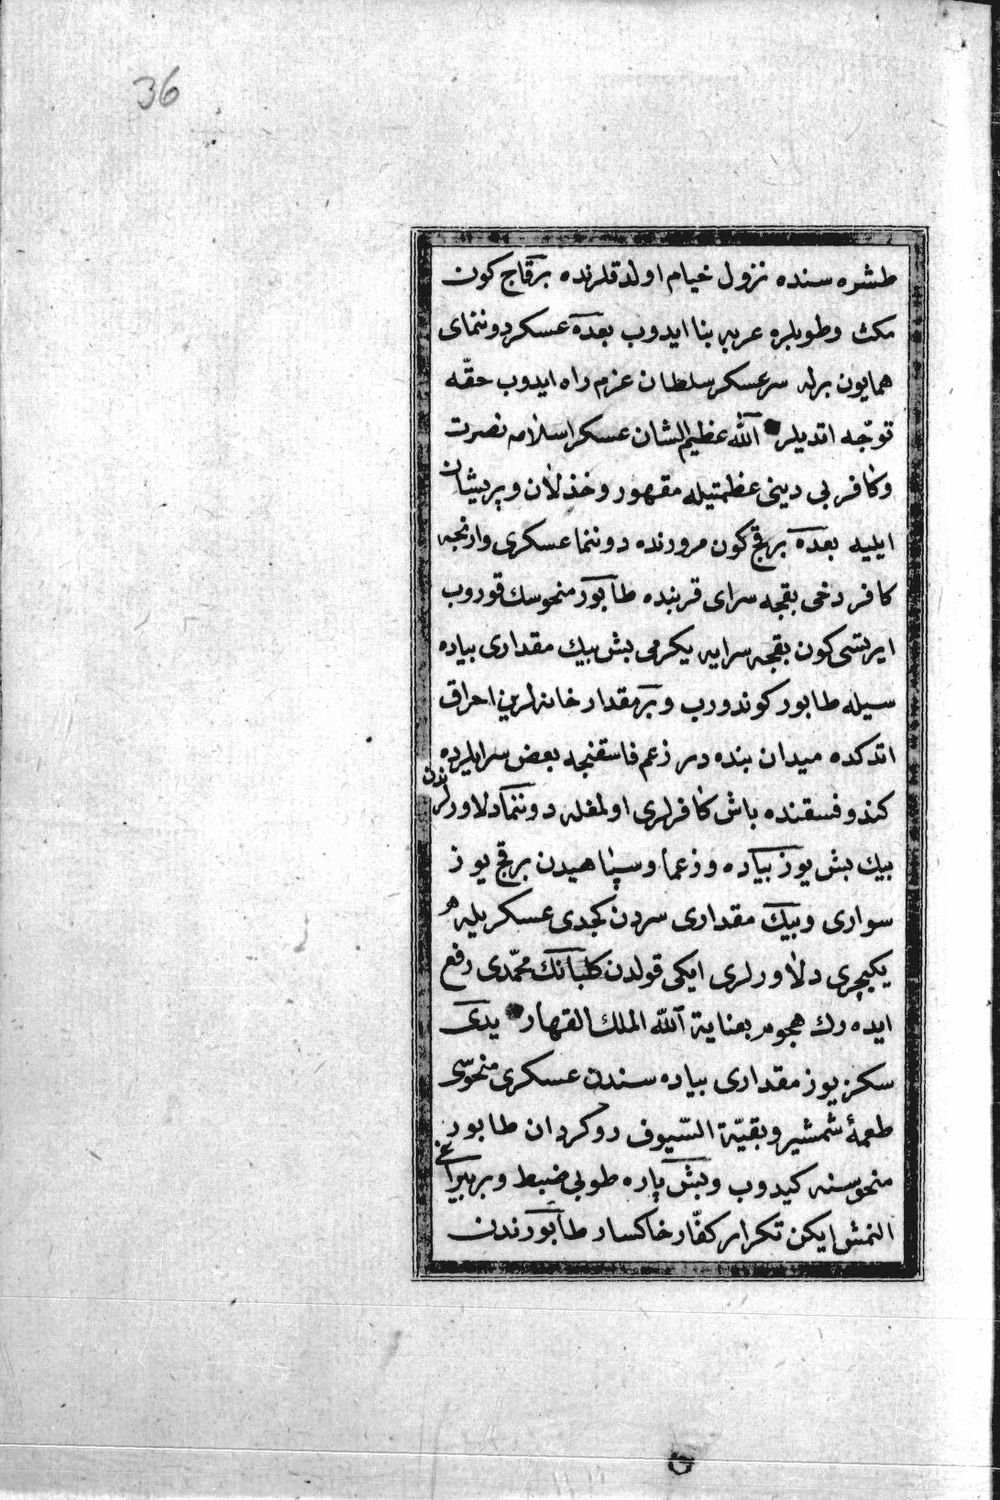 36
طشره سنده نزول خيام اولدقلرنده برقاج كون
مكث وطوبلره عربه بنا ايدوب بعده عسكر دوننماى
همايون برله سرعسكر سلطان عزم راه ايدوب حقّه
توجّه اتديلر الله عظيم الشان عسكر اسلامه نصرت
وكافر بى دينى عظمتيله مقهور وخذلان وپريشان
ايليه بعده برقچ كون مرورنده دوننما عسكرى وارنجه
كافر دخى بقجه سراى قربنده طابور منحوسك قوروب
ايرتسى كون بقجه سرايه يكرمى بش بيك مقدارى بياده
سيله طابور كوندورب وبر مقدار خانه لرين احراق
اتدكده ميدان بنده در زعم فاسقنجه بعض سرايلرده
كندو فسقنده باش كافرلرى اولمغله دوننما دلاورلرندن
بيك بش يوز بياده وزعما وسپاهيدن برقچ يوز
سوارى وبيك مقدارى سردن كچدى عسكريله هر
يكيچرى دلاورلرى ايكى قولدن كلبانك محمّدى رفع
ايده رك هجوم بعناية الله الملك القهار يدى
سكز يوز مقدارى بياده سندن عسكرى منحوسى
طعمۀ شمشير وبقيّة السّيوف روكردان طابور
منحوسنه كيدوب وبش پاره طوبى ضبط وبر بيراغى
النمش ايكن تكرار كفّار خاكسار طابورندن